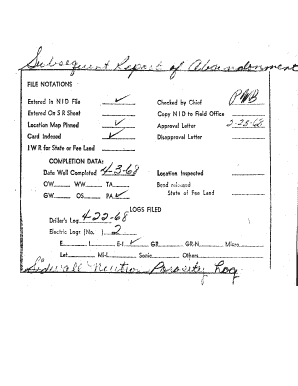 Subsequent Report of Abandonment
FILE NOTATIONS
Entered in NID File ✓
Entered On S R Sheet
Location Map Pinned ✓
Card Indexed ✓
I W R for State or Fee Land
Checked by Chief PWB
Copy NID to Field Office
Approval Letter 2-23-68
Disapproval Letter
COMPLETION DATA:
Date Well Completed 4-3-68
OW WW TA
GW OS PA ✓
Location Inspected
Bond released
State of Fee Land
LOGS FILED
Driller's Log 4-22-68
Electric Logs (No. ) 2
E I E-I ✓ GR GR-N Micro
Lat Mi-L Sonic Others
Sidewall Neutron Porosity Log